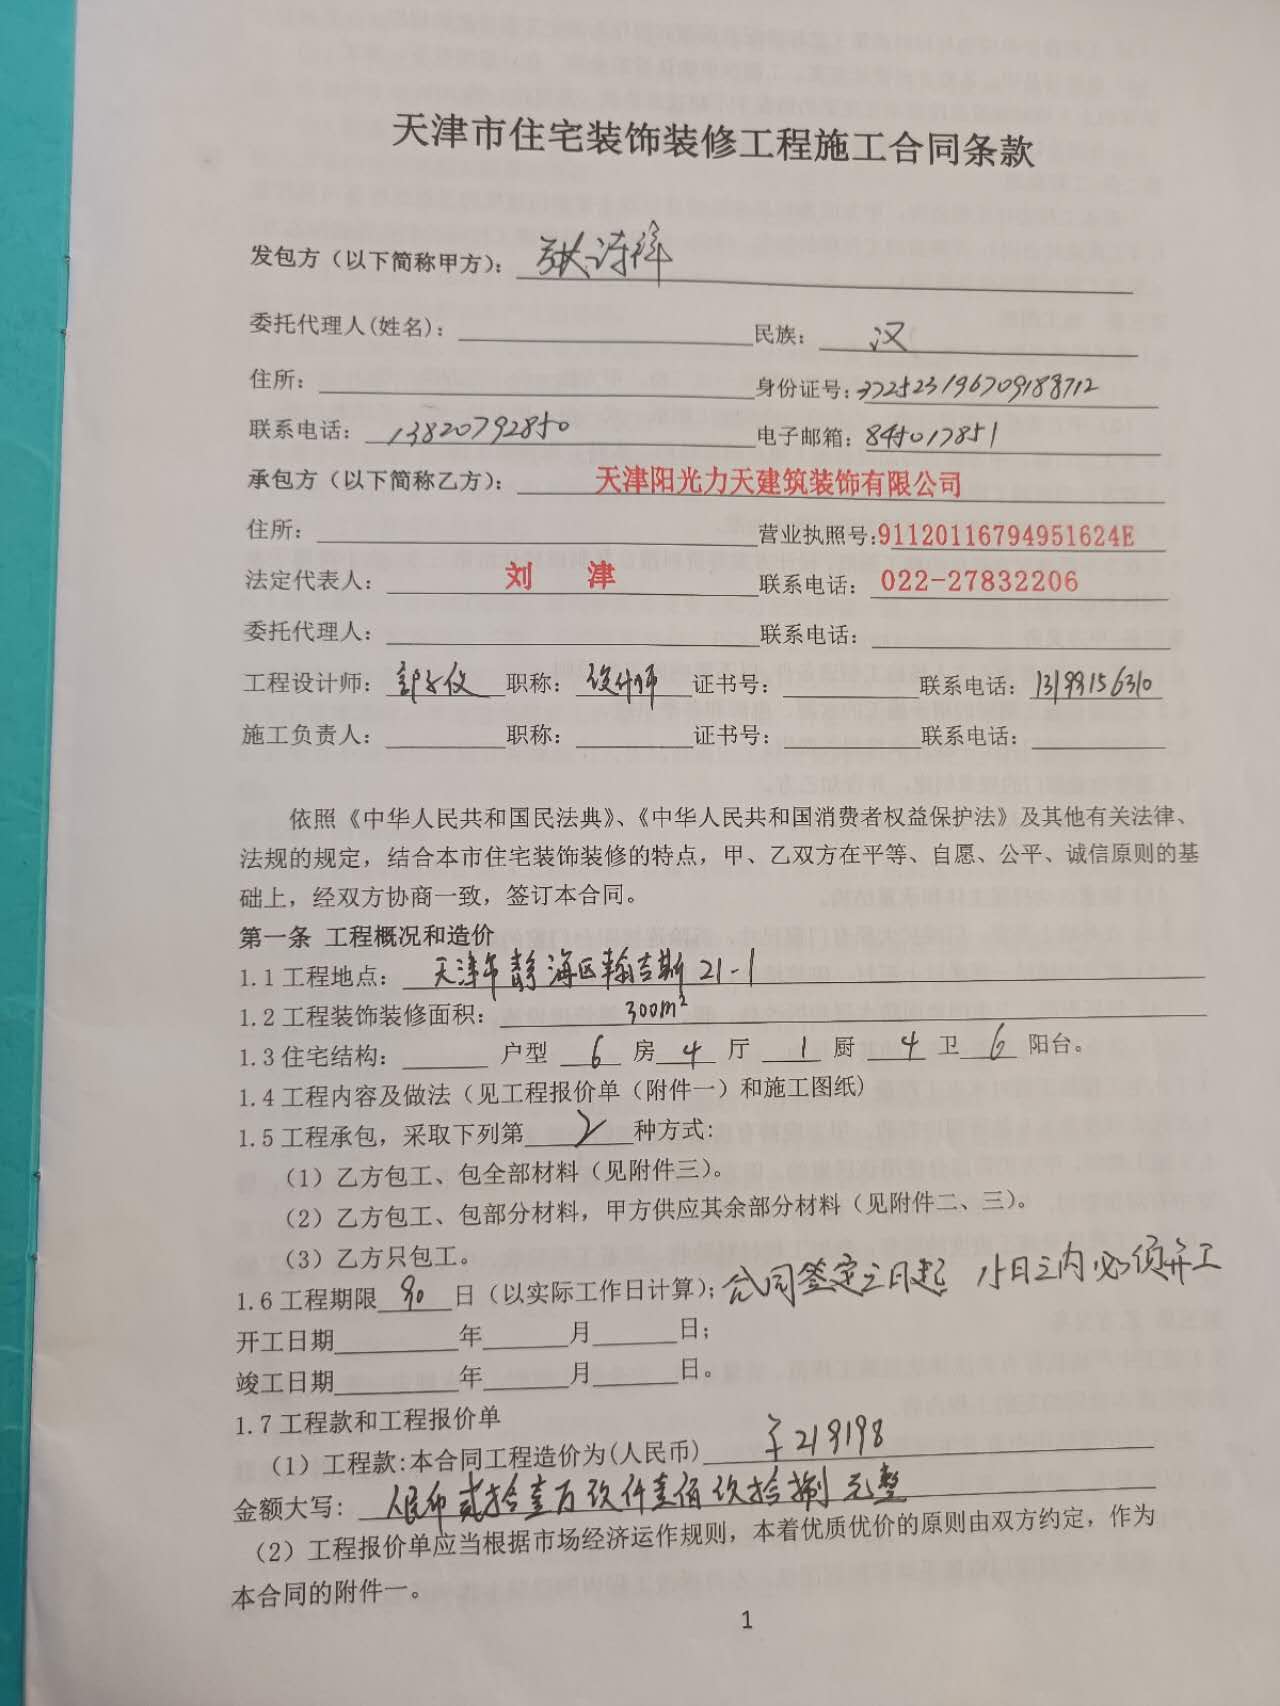 天津市住宅装饰装修工程施工合同条款
发包方（以下简称甲方）：张诗祥
委托代理人(姓名)： 民族：汉
住所： 身份证号：372523196709188712
联系电话：13820792850 电子邮箱：845017851
承包方（以下简称乙方）：天津阳光力天建筑装饰有限公司
住所： 营业执照号：91120116794951624E
法定代表人：刘 津 联系电话：022-27832206
委托代理人： 联系电话：
工程设计师： 职称：设计师 证书号： 联系电话：13199156310
施工负责人： 职称： 证书号： 联系电话：
依照《中华人民共和国民法典》、《中华人民共和国消费者权益保护法》及其他有关法律、
法规的规定，结合本市住宅装饰装修的特点，甲、乙双方在平等、自愿、公平、诚信原则的基
础上，经双方协商一致，签订本合同。
第一条 工程概况和造价
1.1 工程地点：天津市静海区翰吉斯21-1
1.2 工程装饰装修面积：300m²
1.3 住宅结构： 户型 6 房 4 厅 1 厨 4 卫 6 阳台。
1.4 工程内容及做法（见工程报价单（附件一）和施工图纸)
1.5 工程承包，采取下列第 2 种方式:
（1）乙方包工、包全部材料（见附件三）。
（2）乙方包工、包部分材料，甲方供应其余部分材料（见附件二、三）。
（3）乙方只包工。
1.6 工程期限 90 日（以实际工作日计算）；合同签定之日起 15日之内必须开工
开工日期 年 月 日；
竣工日期 年 月 日。
1.7 工程款和工程报价单
（1）工程款:本合同工程造价为(人民币) ￥219198
金额大写：人民币贰拾壹万玖仟壹佰玖拾捌元整
（2）工程报价单应当根据市场经济运作规则，本着优质优价的原则由双方约定，作为
本合同的附件一。
1